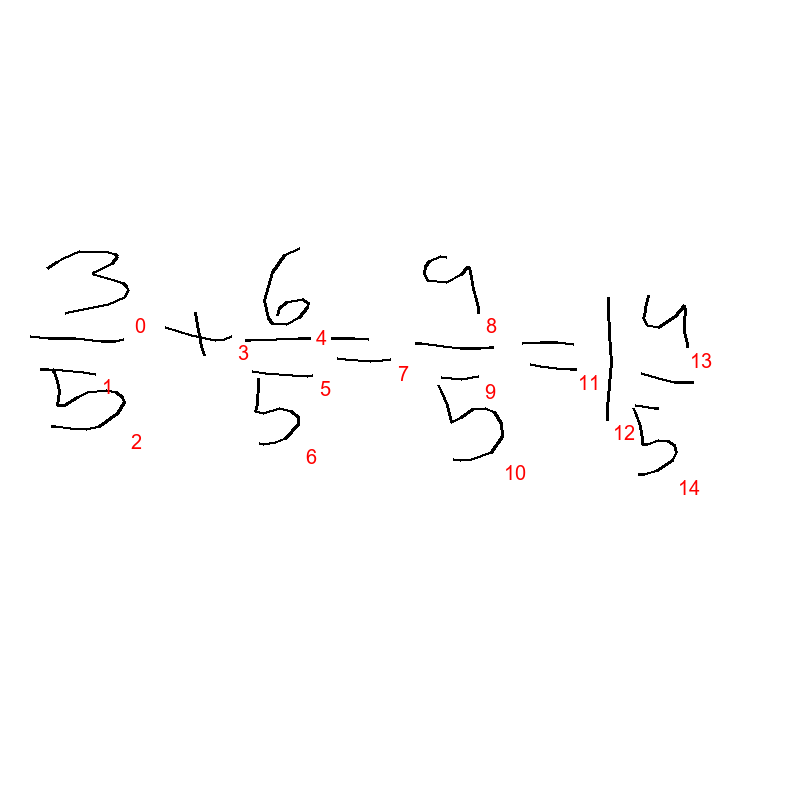 3/5 + 6/5 = 9/5 = 1 4/5
0 1 2 3 4 5 6 7 8 9 10 11 12 13 14